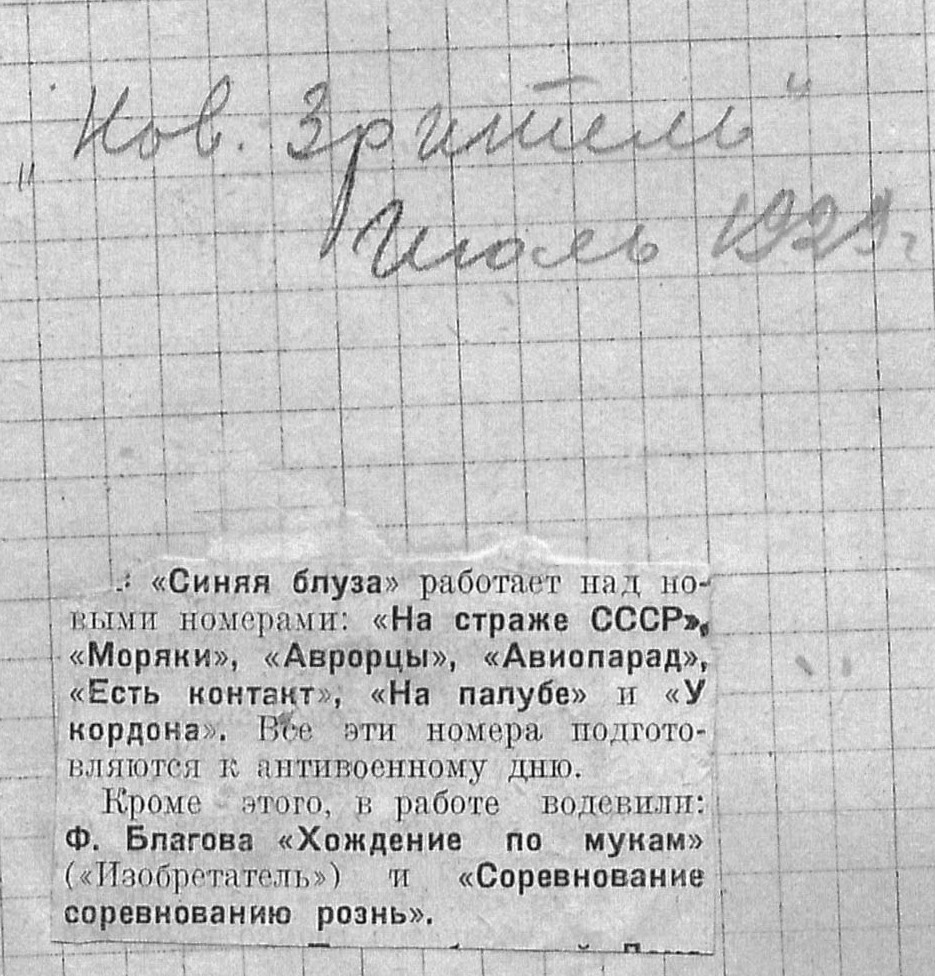 „Нов. Зритель"
Июль 1929 г
«Синяя блуза» работает над но-
выми номерами: «На страже СССР»,
«Моряки», «Аврорцы», «Авиопарад»,
«Есть контакт», «На палубе» и «У
кордона». Все эти номера подгото-
вляются к антивоенному дню.
Кроме этого, в работе водевили:
Ф. Благова «Хождение по мукам»
(«Изобретатель») и «Соревнование
соревнованию рознь».